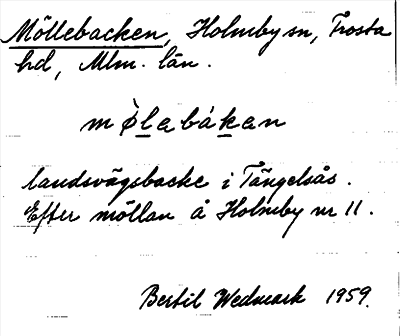 Möllebacken, Holmby sn, Frosta
hd, Mlm. län.
mølabákan
landsvägsbacke i Tängelsås.
Efter möllan å Holmby nr 11.
Bertil Wedmark 1959.